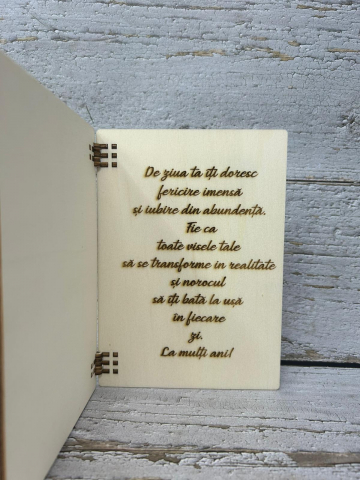 De ziua ta îți doresc
fericire imensă
și iubire din abundență.
Fie ca
toate visele tale
să se transforme in realitate
și norocul
să îți bată la ușă
în fiecare
zi.
La mulți ani!